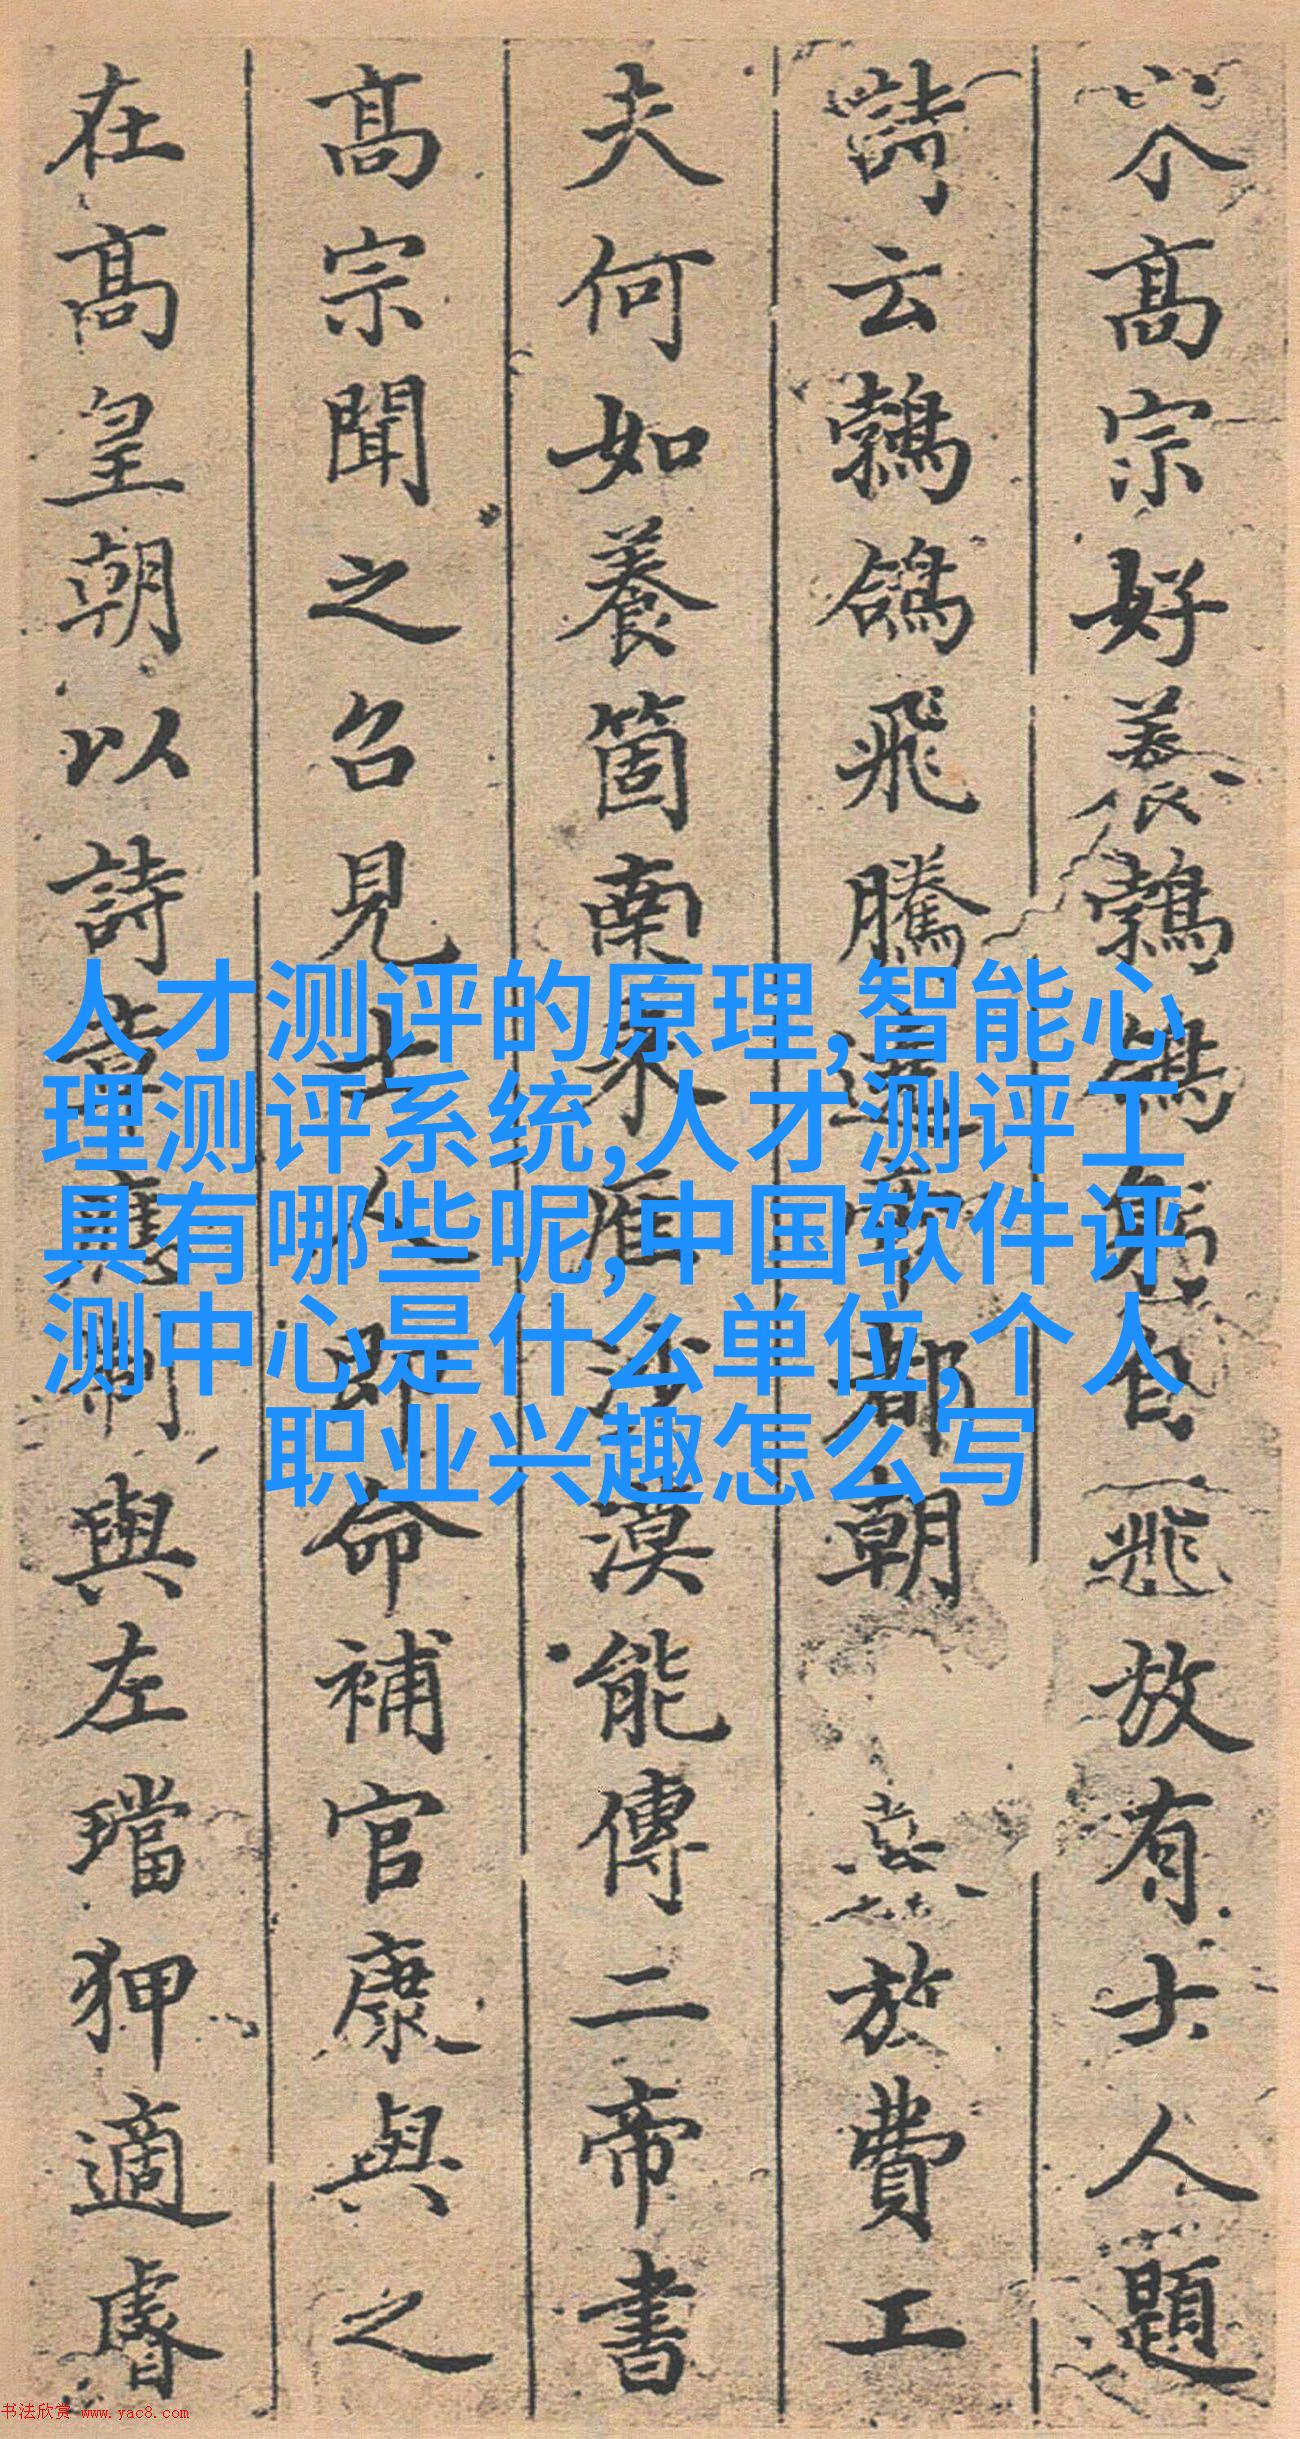 高宗好養鵓鴿躬自飛放有士人題
詩云鵓鴿飛騰遶帝都朝暮放費工
夫何如養箇南來雁沙漠能傳二帝書
高宗聞之召見士人即命補官康與之
在高皇朝以詩章應制與左璫狎適睿
人才测评的原理,智能心
理测评系统,人才测评工
具有哪些呢,中国软件评
测中心是什么单位,个人
职业兴趣怎么写
书法欣赏 www.yac8.com